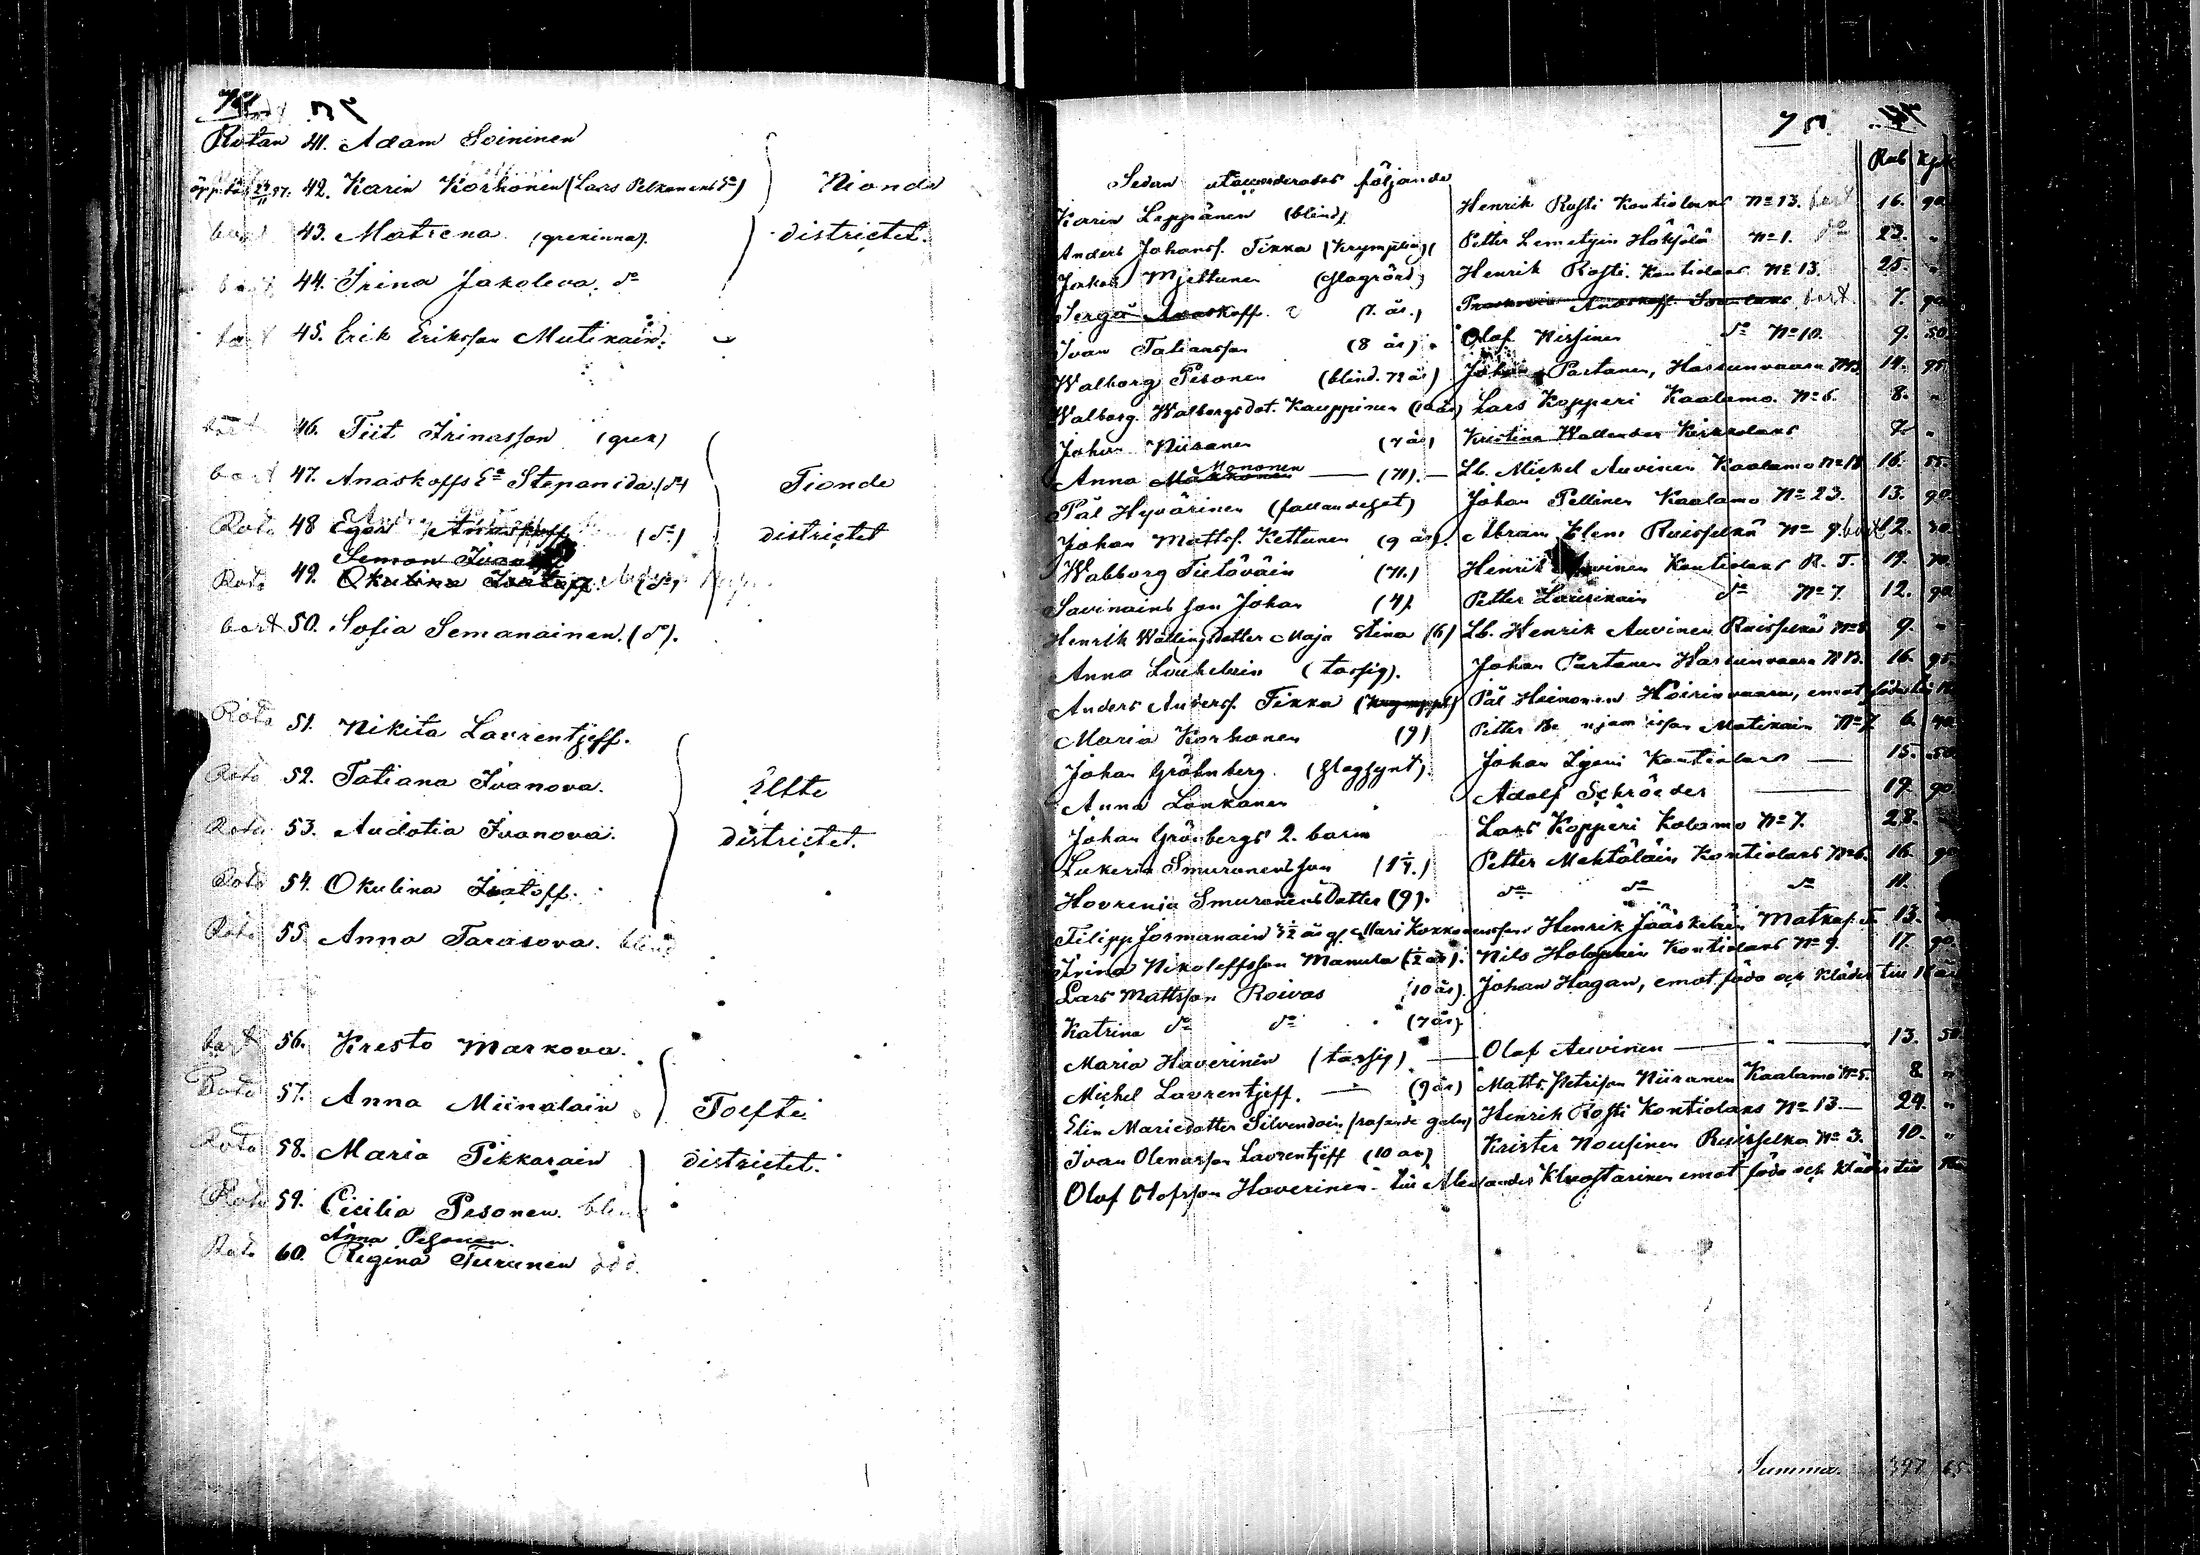 Rotan 41. Adam Soininen
42. Karin Korhonen (Lars Pelkonens dr)
Nionde
bort 43. Matrena (grekinna).
districtet.
bort 44. Irina Jakoleva. do
bort 45. Erik Eriksson Mutikain.
bort 46. Tiit Irinasson (grek)
bort 47. Anaskoffs Ea Stepanida. (do)
Tionde
Rota 48 Egor Anaskoff (do)
districtet
Semon Ivanoff
Rota 49. Okulina (do)
bort 50. Sofia Semanainen. (do).
Rota 51. Nikita Lavrentjeff.
Rota 52. Tatiana Ivanova.
Elfte
Rota 53. Audotia Ivanova.
districtet.
Rota 54. Okulina Isatoff.
Rota 55 Anna Tarasova. blind
bort 56. Kresto Markova.
Rota 57. Anna Miinalain
Tolfte
Rota 58. Maria Pikkarain
districtet.
Rota 59. Cicilia Pesonen. blind
Anna Pesonen.
Rota 60. Regina Turunen död.
751.
Rub Kpk
Sedan utackorderades följande
Karin Leppänen (blind) Henrik Rosti Kontiolaks No 13. bort 16. 90
Anders Johanss. Tikka (krympling) Petter Lemetyin Hökjölä No 1. do 23. "
Jakob Mjettunen (slagrörd) Henrik Rosti. Kontiolaks No 13. 25. "
Sergei Anaskoff. (7. år.) Praskovia Anaskoff bort 7. 90
Ivan Tatiansson (8 år). Olof Nissinen do No 10. 9. 50
Walborg Pesonen (blind. 72 år) Johan Partanen, Hassunvaara No 13 14. 95
Walborg. Walborgsdot. Kauppinen (10 år) Lars Kopperi Kaalamo. No 6. 8. "
Johan Niiranen (7 år) Kristina Wallender Kirkkolaks 7. "
Mononen
Anna Makkonen — (71). — Lb. Michel Auvinen Kaalamo No 18 16. 55
Pål Hyvärinen (fallandesjet) Johan Pellinen Kaalamo No 23. 13. 90
Johan Mattss. Kettunen (9 år). Abram Klem Ruisselkä No 9. bort 12. 30
Walborg Tietäväin (71.) Henrik Auvinen Kontiolaks R. T. 19. 70
Savinains son Johan (4). Petter Laurikain do No 7. 12. 90
Henrik Wallings dotter Maja Stina (6) Lb. Henrik Auvinen Ruisselkä No 8 9. "
Anna Luukelain (tossig). Johan Partanen Hassunvaara No 13. 16. 95
Anders Anderss. Tikka Pål Heinonen Hoirinvaara, emot föda
Maria Korhonen (9) Petter Benjamisson Matikain No 7. 6. 40
Johan Gröhnberg. (slagsynt). Johan Lyeni Kontiolaks — 15. 50
Anna Lonkanen Adolf Schröeder — 19. 90
Johan Grönbergs 2. barn Lars Kopperi Kolamo No 7. 28.
Lukeria Smuronens son (1 1/4.) Petter Mehtäläin Kontiolaks No 6. 16. 90
Hovrenia Smuronens Dotter (9). do do do 11.
Filipp Jormanain 3 1/2 år gl. Mari Kokkonensson Henrik Jääskeläin Matkas. 13.
Irina Nikoleffsson Manula (1/2 år). Nils Holopain Kontiolaks No 9. 17. 90
Lars Mattsson Roivas (10 år). Johan Hagan, emot föda och kläder till 15 år
Katrina do do (7 år).
Maria Haverinen (tossig) — Olof Auvinen — " — 13. 50
Michel Lavrentjeff. — (9 år) Matts Petrisson Niiranen Kaalamo No 5. 8. "
Elin Mariedotter Silvendoin (rasande galen) Henrik Rosti Kontiolaks No 13 — 24. "
Ivan Olenasson Lavrentjeff (10 år) Krister Nousinen Ruisselka No 3. 10. "
Olof Olofsson Haverinen. till Alexander Kluastarinen emot föda och kläder till
Summa. 397 65